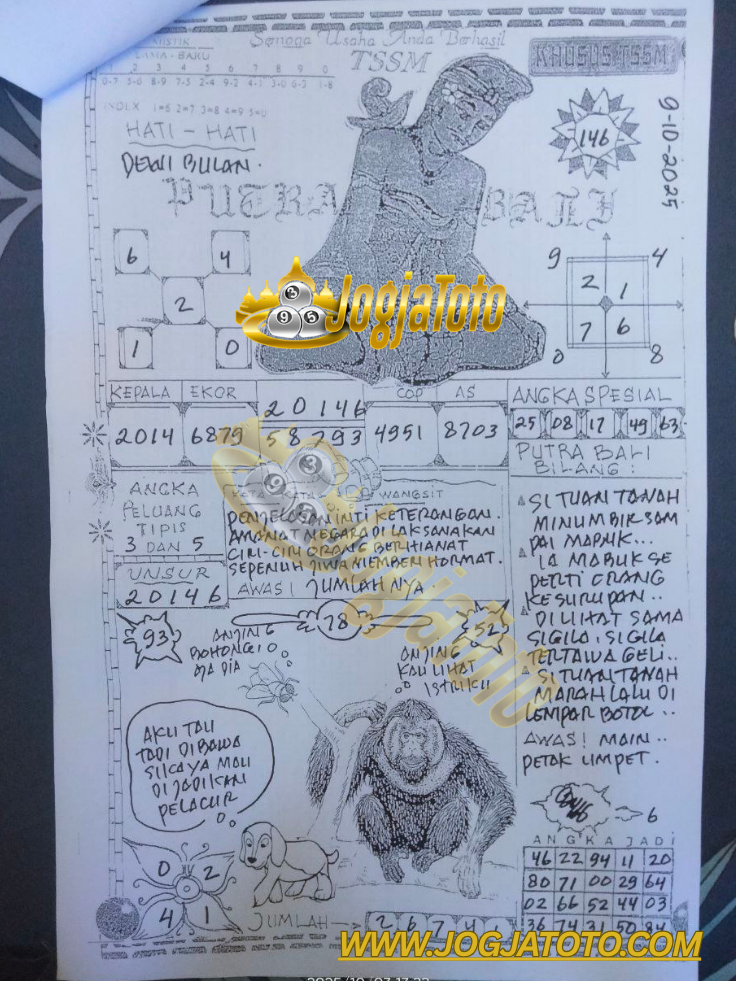 Semoga Usaha Anda Berhasil
MISTIK
LAMA - BARU
TSSM
KHUSUS TSSM
1 2 3 4 5 6 7 8 9 0
INDEX 1=6 2=7 3=8 4=9 5=0
HATI - HATI
DEWI BULAN.
146
9-10-2025
PUTRA BALI
6 4
2
1 0
9 4
2 1
7 6
0 8
JogjaToto
KEPALA EKOR
2014 6879
20146
58793
COP AS
4951 8703
ANGKA SPESIAL
25 08 17 49 63
PUTRA BALI
BILANG :
ANGKA
PELUANG
TIPIS
3 DAN 5
UNSUR
20146
WANGSIT
PENJELASAN INTI KETERANGAN.
AMANAT NEGARA DI LAKSANAKAN
CIRI-CIRI ORANG BERHIANAT
SEPENUH JIWA MEMBERI HORMAT.
AWAS! JUMLAHNYA
SI TUAN TANAH
MINUM BIR SAM
PAI MABUK...
IA MABUK SE
PERTI ORANG
KESURUPAN..
DI LIHAT SAMA
SIGILA, SIGILA
TERTAWA GELI..
SI TUAN TANAH
MARAH LALU DI
LEMPAR BOTOL..
AWAS! MAIN..
PETAK UMPET.
93
78
52
ANJING
BOHONGI
AJA DIA
ANJING
KAU LIHAT
ISTRIKU
AKU TAU
TADI DIBAWA
SIKAYA MAU
DI JADIKAN
PELACUR
0 2
4 1
JUMLAH
2 6 7 4
6
ANGKA JADI
46 22 94 11 20
80 71 00 29 64
02 66 52 44 03
36 74 31 50 84
WWW.JOGJATOTO.COM